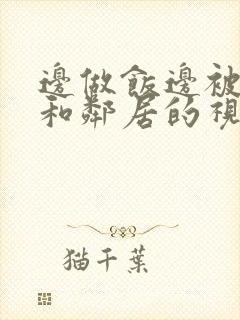 邊做飯邊被
和鄰居的視
猫千葉